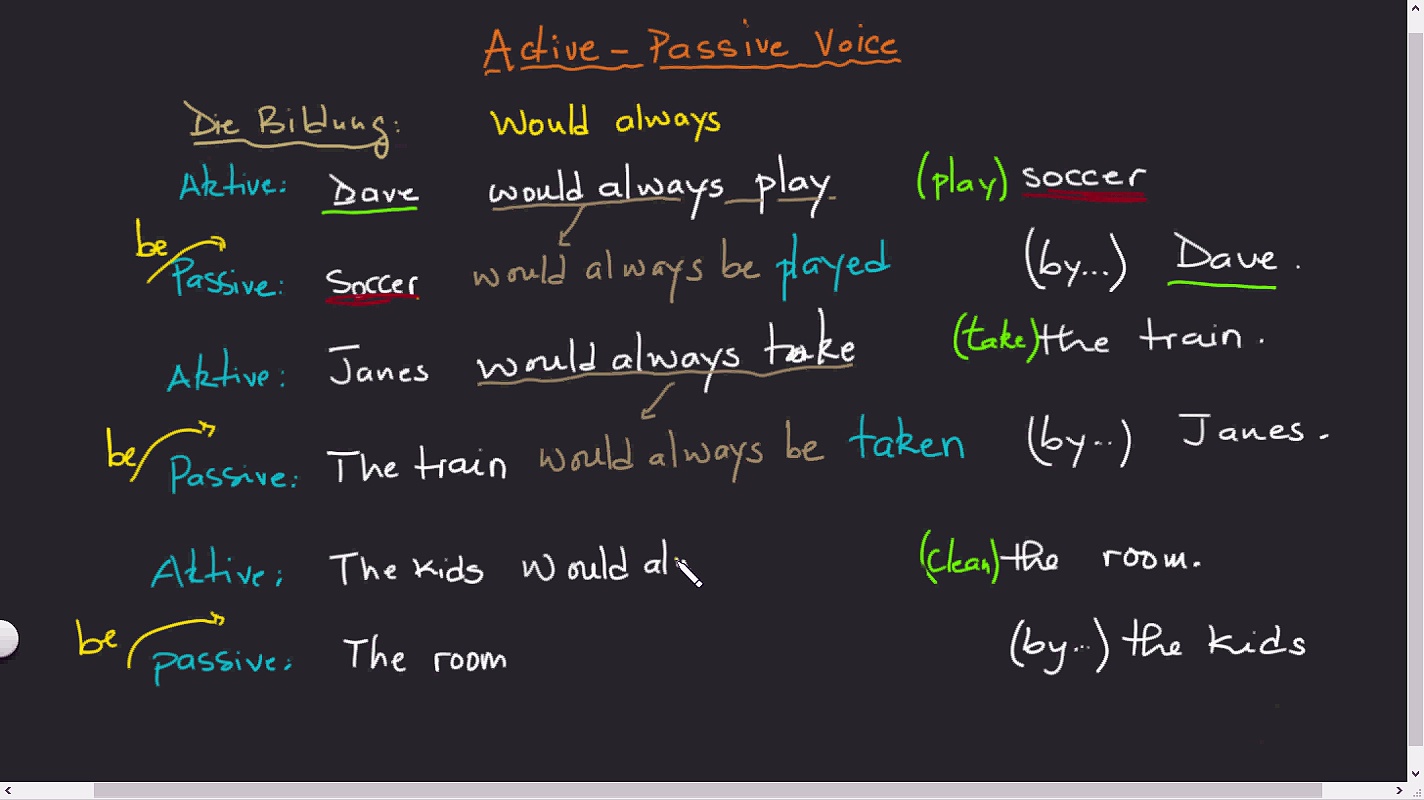 Active - Passive Voice
Die Bildung: Would always
Aktive: Dave would always play (play) soccer
be
Passive: Soccer would always be played (by...) Dave.
Aktive: Janes would always take (take) the train.
be
Passive: The train would always be taken (by...) Janes.
Aktive: The kids Would al (clean) the room.
be
passive: The room (by...) the kids